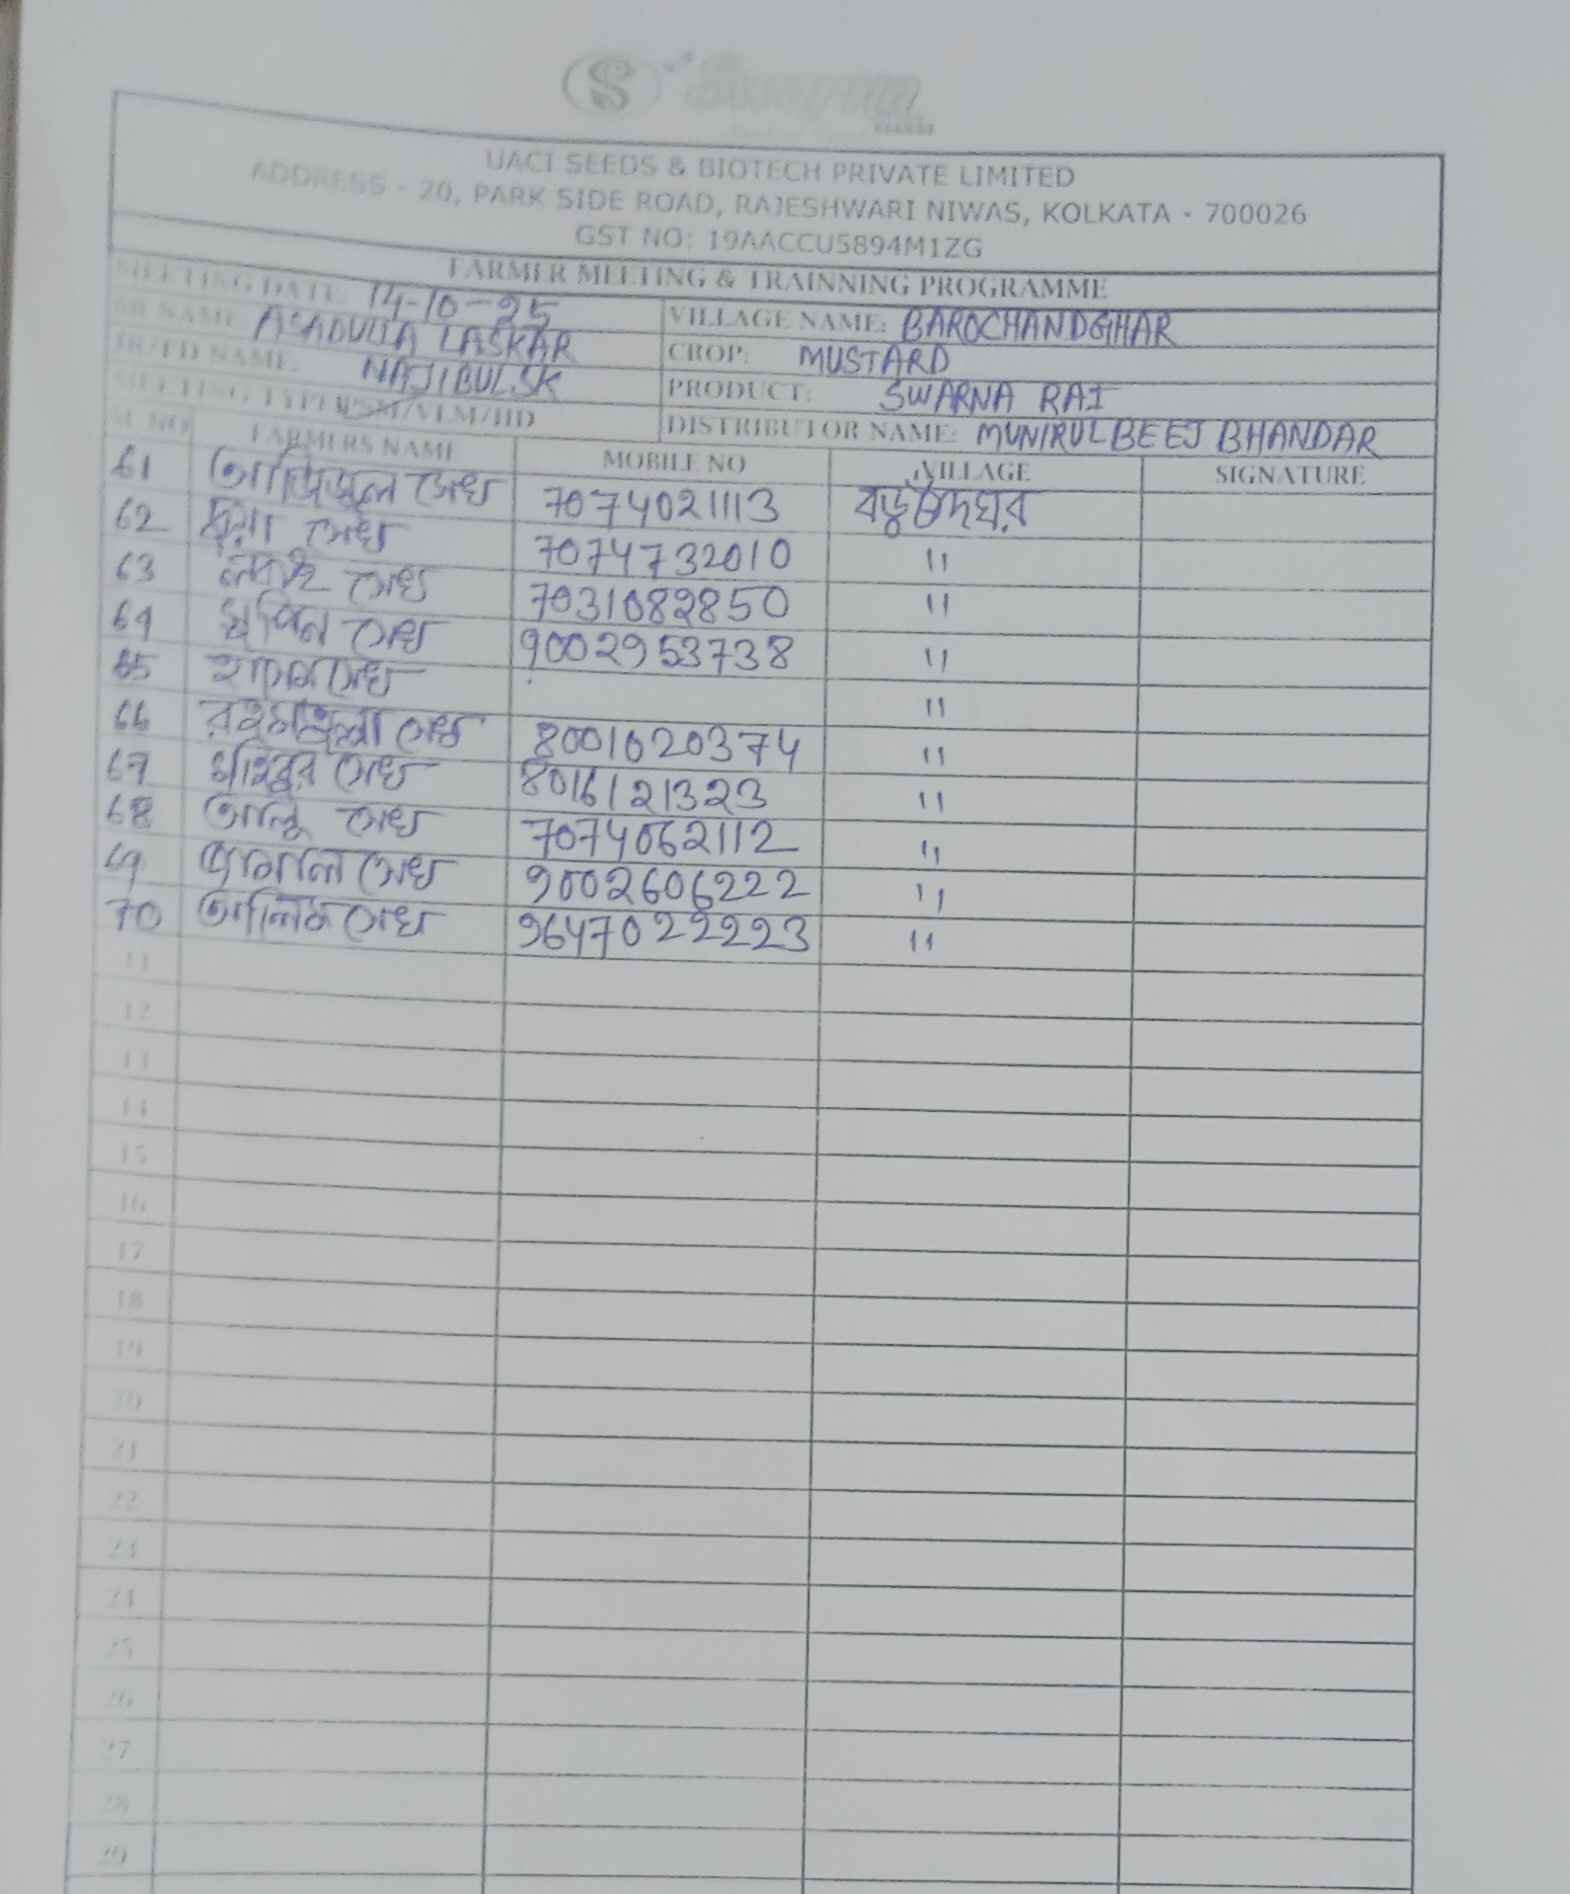 S
UACI SEEDS & BIOTECH PRIVATE LIMITED
ADDRESS - 20, PARK SIDE ROAD, RAJESHWARI NIWAS, KOLKATA - 700026
GST NO: 19AACCU5894M1ZG
FARMER MEETING & TRAINNING PROGRAMME
MEETING DATE 14-10-25 VILLAGE NAME: BAROCHANDGHAR
NAME ASADULLA LASKAR CROP: MUSTARD
NAME: NAJIBUL SK PRODUCT: SWARNA RAI
MEETING TYPE /VLM/HD DISTRIBUTOR NAME: MUNIRUL BEEJ BHANDAR
SL NO FARMERS NAME MOBILE NO VILLAGE SIGNATURE
61 আজিজুল সেখ 7074021113 বড়চাঁদঘর
62 সেখ 7074732010 "
63 সেখ 7031082850 "
64 সেখ 9002953738 "
65 সেখ "
66 সেখ 8001020374 "
67 সেখ 8016121323 "
68 সেখ 7074062112 "
69 সেখ 9002606222 "
70 আলিম সেখ 9647022223 "
11
12
13
14
15
16
17
18
19
20
21
22
23
24
25
26
27
28
29